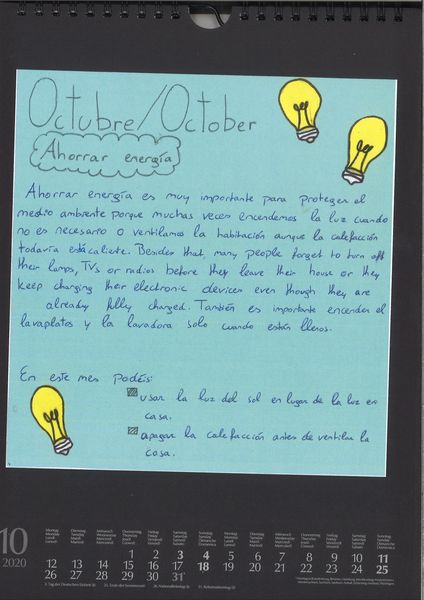 Octubre/October
Ahorrar energía
Ahorrar energía es muy importante para proteger el
medio ambiente porque muchas veces encendemos la luz cuando
no es necesario o ventilamos la habitación aunque la calefacción
todavía está caliente. Besides that, many people forget to turn off
their lamps, TVs or radios before they leave their house or they
keep charging their electronic devices even though they are
already fully charged. También es importante encender el
lavaplatos y la lavadora solo cuando están llenos.
En este mes podéis:
usar la luz del sol en lugar de la luz en
casa.
apagar la calefacción antes de ventilar la
casa.
10
2020
1 2 3 4 5 6 7 8 9 10 11
12 13 14 15 16 17 18 19 20 21 22 23 24 25
26 27 28 29 30 31